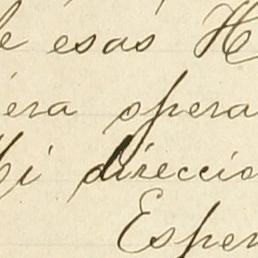 e esas H
era opera
Mi direccio
Esper